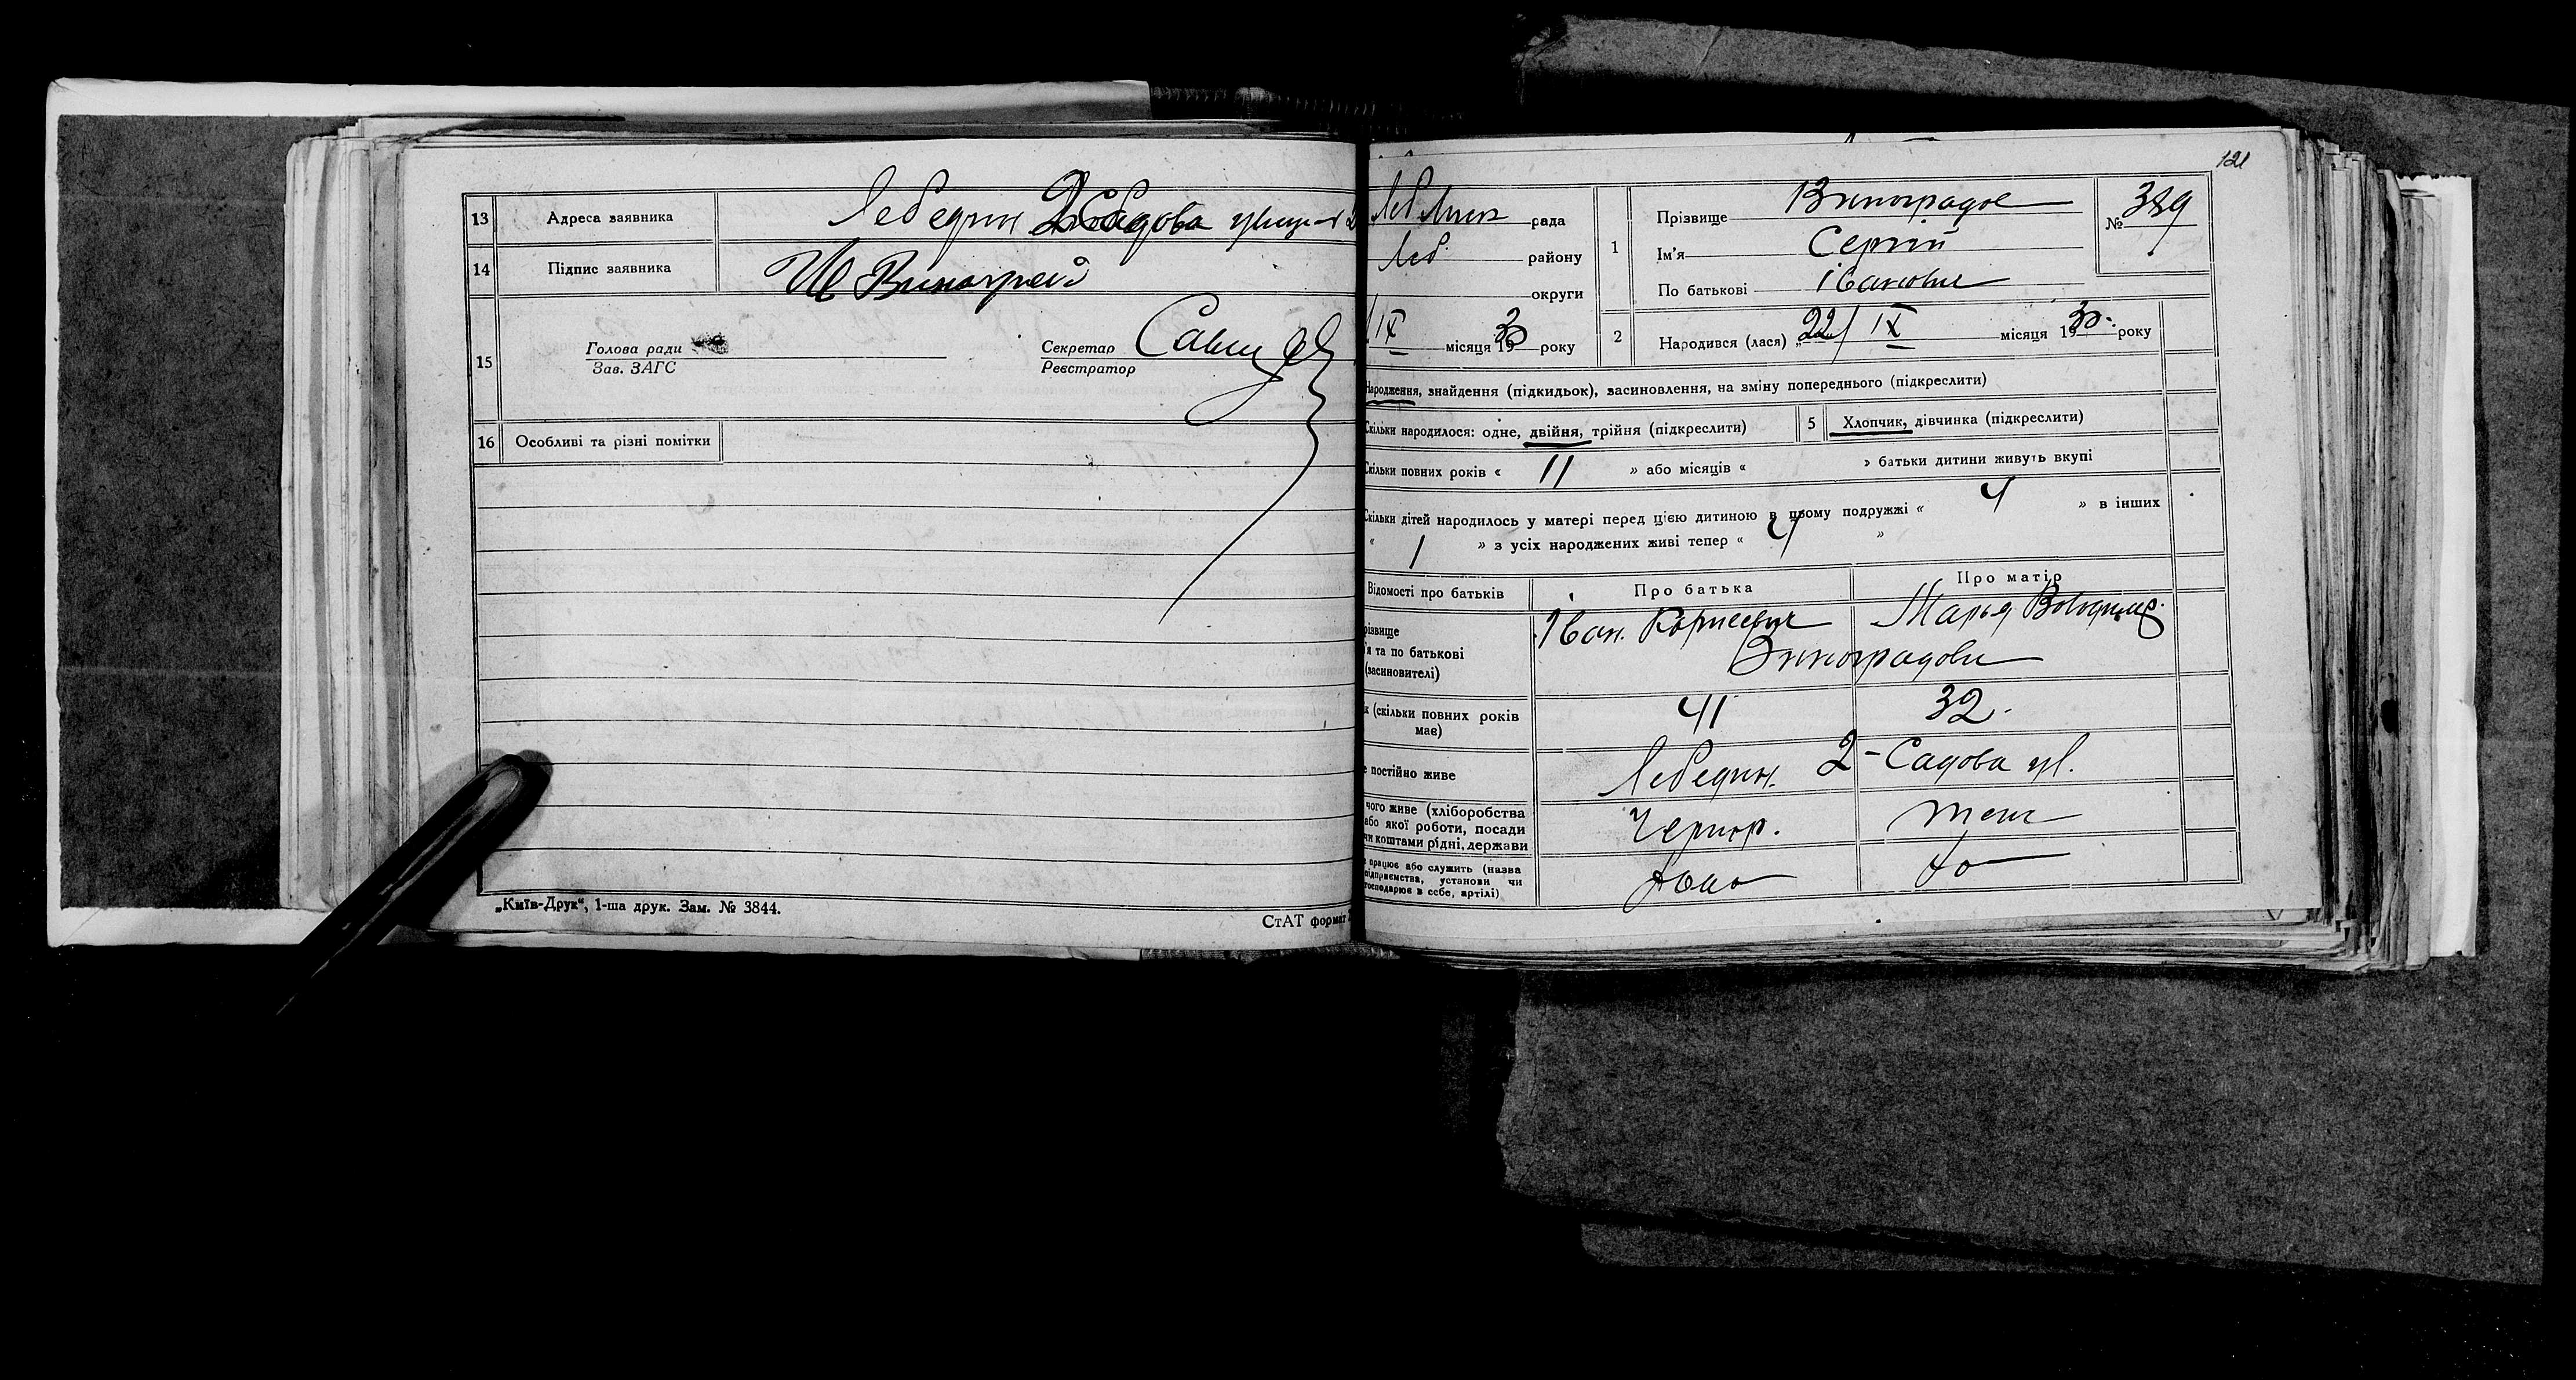 13 Адреса заявника Лебедин 2 Садова
14 Підпис заявника
15 Голова ради Секретар
Зав. ЗАГС Реєстратор
16 Особливі та різні помітки
„Київ-Друк“, 1-ша друк. Зам. № 3844.
СтАТ формат
121
рада
Леб. району
округи
IX місяця 1930 року
1 Прізвище Виноградов
Ім'я Сергій
По батькові Іванович
№ 389
2 Народився (лася) „22/ IX місяця 1930. року
Народження, знайдення (підкидьок), засиновлення, на зміну попереднього (підкреслити)
Скільки народилося: одне, двійня, трійня (підкреслити) 5 Хлопчик, дівчинка (підкреслити)
Скільки повних років « 11 » або місяців « » батьки дитини живуть вкупі
Скільки дітей народилось у матері перед цією дитиною в цьому подружжі « 4 » в інших
« 1 » з усіх народжених живі тепер « 4 »
Відомості про батьків Про батька Про матір
різвище
'я та по батькові
(засиновителі)
Іван. Корнеевич Марья Володимир.
Виноградови
к (скільки повних років має) 41 32.
е постійно живе Лебедин. 2-Садова ул.
чого живе (хліборобства
або якої роботи, посади
чи коштами рідні, держави
Чернор.
е працює або служить (назва
підприємства, установи чи
господарює в себе, артілі)